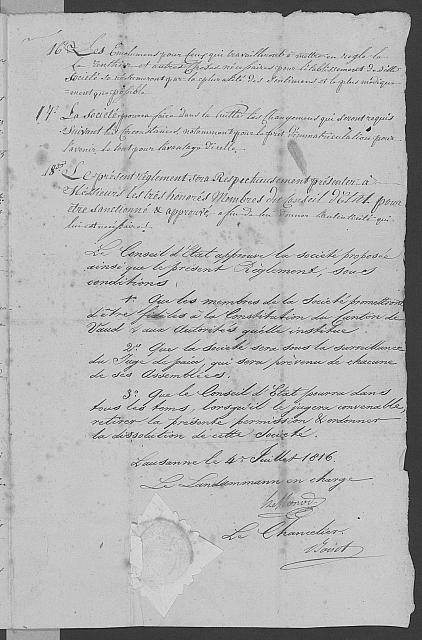 16e. Les Emolumens pour ceux qui travailleront à mettre en regle la
et autres choses nécessaires pour l'établissement de dite
Société se détermineront par la pluralité des Sentimens et le plus modique-
ment que possible
17e. La Société pourra faire dans la suitte les Changemens qui seront requis
Suivant les Circonstances, notamment pour le prix d'immatriculation pour
l'avenir, le tout pour l'avantage d'icelle.
18e. Le présent règlement sera Respectueusement présenter à
Messieurs les très honorés Membres du Conseil d'Etat pour
être Sanctionné & approuvé, afin de lui donner l'autenticité qui
lui est nécessaire.
Le Conseil d'Etat approuve la société proposée
ainsi que le présent Règlement, sous
conditions:
1o. Que les membres de la Société promettront
d'être fidèles à la Constitution du Canton de
Vaud & aux Autorités qu'elle institue.
2o. Que la Société sera sous la surveillance
du Juge de paix, qui sera prévenu de chacune
de ses Assemblées.
3o. Que le Conseil d'Etat pourra dans
tous les tems, lorsqu'il le jugera convenable,
retirer la présente permission & ordonner
la dissolution de cette Société.
Lausanne le 4e Juillet 1816
Le Landammann en charge
Le Chancelier
Boisot